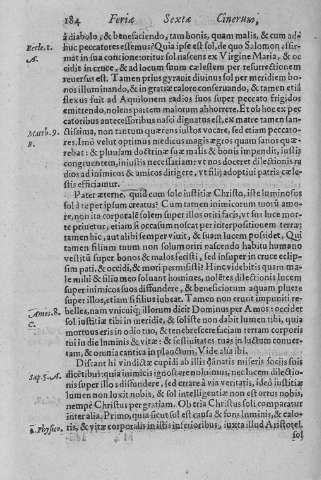 184 Feriæ Sextæ Cinerum,
à diabolo, & benefaciendo, tam bonis, quam malis, & cum ad-
Eccle.1. huc peccatores essemus? Quia ipse est sol, de quo Salomon affir-
A. mat in sua contionе: oritur sol nascens ex Virgine Maria, & oc
cidit in cruce, & ad locum suum cælestem per resurrectionem
reuersus est. Tamen prius gyrauit diuinus sol per meridiem bo-
nos illuminando, & in gratiæ calore conseruando, & tamen etiã
flexus fuit ad Aquilonem radios suos super peccato frigidos
emittendo, nolens pastem malorum abhorrere. Et ob hoc ex pec
catoribus antecessoribus nasci dignatus est, ex matre tamen san-
Matth.9. ctissima, non tantum quærens iustos vocare, sed etiam peccato-
B. res. Imò veluti optimus medicus magis ægros quam sanos quæ-
rebat: & pluuiam doctrinæ suæ malis & bonis impendit, iustis
congruentem, iniustis necessariam: vt nos doceret dilectionis ra
dios ad inimicos & amicos dirigere, vt filij adoptiui patria cæ-
lestis efficiamur.
Pater æterne, quid cum sole iustitiæ Christo, iste luminosus
sol à te per ipsum creatus? Cum tamen inimicorum tuorũ amo-
re, non ita corporalẽ solem super illos oriri facis, vt sua luce mor-
te priuetur, etiam si occasum noscat per interpositionem terræ;
tamen hic, aut alibi semper viuit, & suam lucem possidet. Qui
tamen filium tuum non solum oriri nascendo habitu humano
vestitũ super bonos & malos fecisti, sed insuper in cruce eclip-
sim pati, & occidi, & mori permisisti? Hinc vide bitis quàm ma-
le mihi & filio meo soluant homines, nolẽtes dilectionis lucem
super inimicos suos diffundere, & beneficiorum aquam pluere
super illos, etiam si filius iubeat. Tamen non erunt impuniti re-
Amos.8. belles, nam vnicuiq; illorum dicit Dominus per Amos: occidet
C. sol iustitiæ tibi in meridie, & sol iste non dabit lumen tibi, quia
mortuus eris in odio tuo, & tenebrescere faciam terram corporis
tui in die luminis & vitæ: & festiuitates tuas in luctum conuer-
tam, & omnia cantica in planctum. Vide alia ibi.
Distant hi vindictæ cupidi ab illis dãnatis miseris sociis suis
Sap.5. A. dicẽtibus: quia inimicis ignoscere nolumus, nec lucem dilectio-
nis super illos diffundere, sed errare à via veritatis, ideò iustitiæ
lumen non luxit nobis, & sol intelligentiæ non est ortus nobis,
nempè Christus per gratiam. Ob tria Christus soli comparatur
inter alia. Primo, quia sicut sol est causa & fons luminis, & calo-
2. Physico. ris, & vitæ corporalis in istis inferioribus, iuxta illud Aristotel.
sol